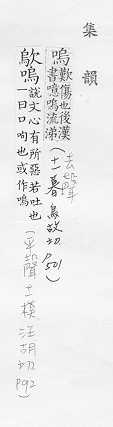 集韻
嗚歎傷也後漢書噫嗚流涕(去聲十一暮烏故切 P.501
歍嗚說文心有所惡若吐也一曰口⿰口句也或作嗚(平聲十一模汪胡切 P92)